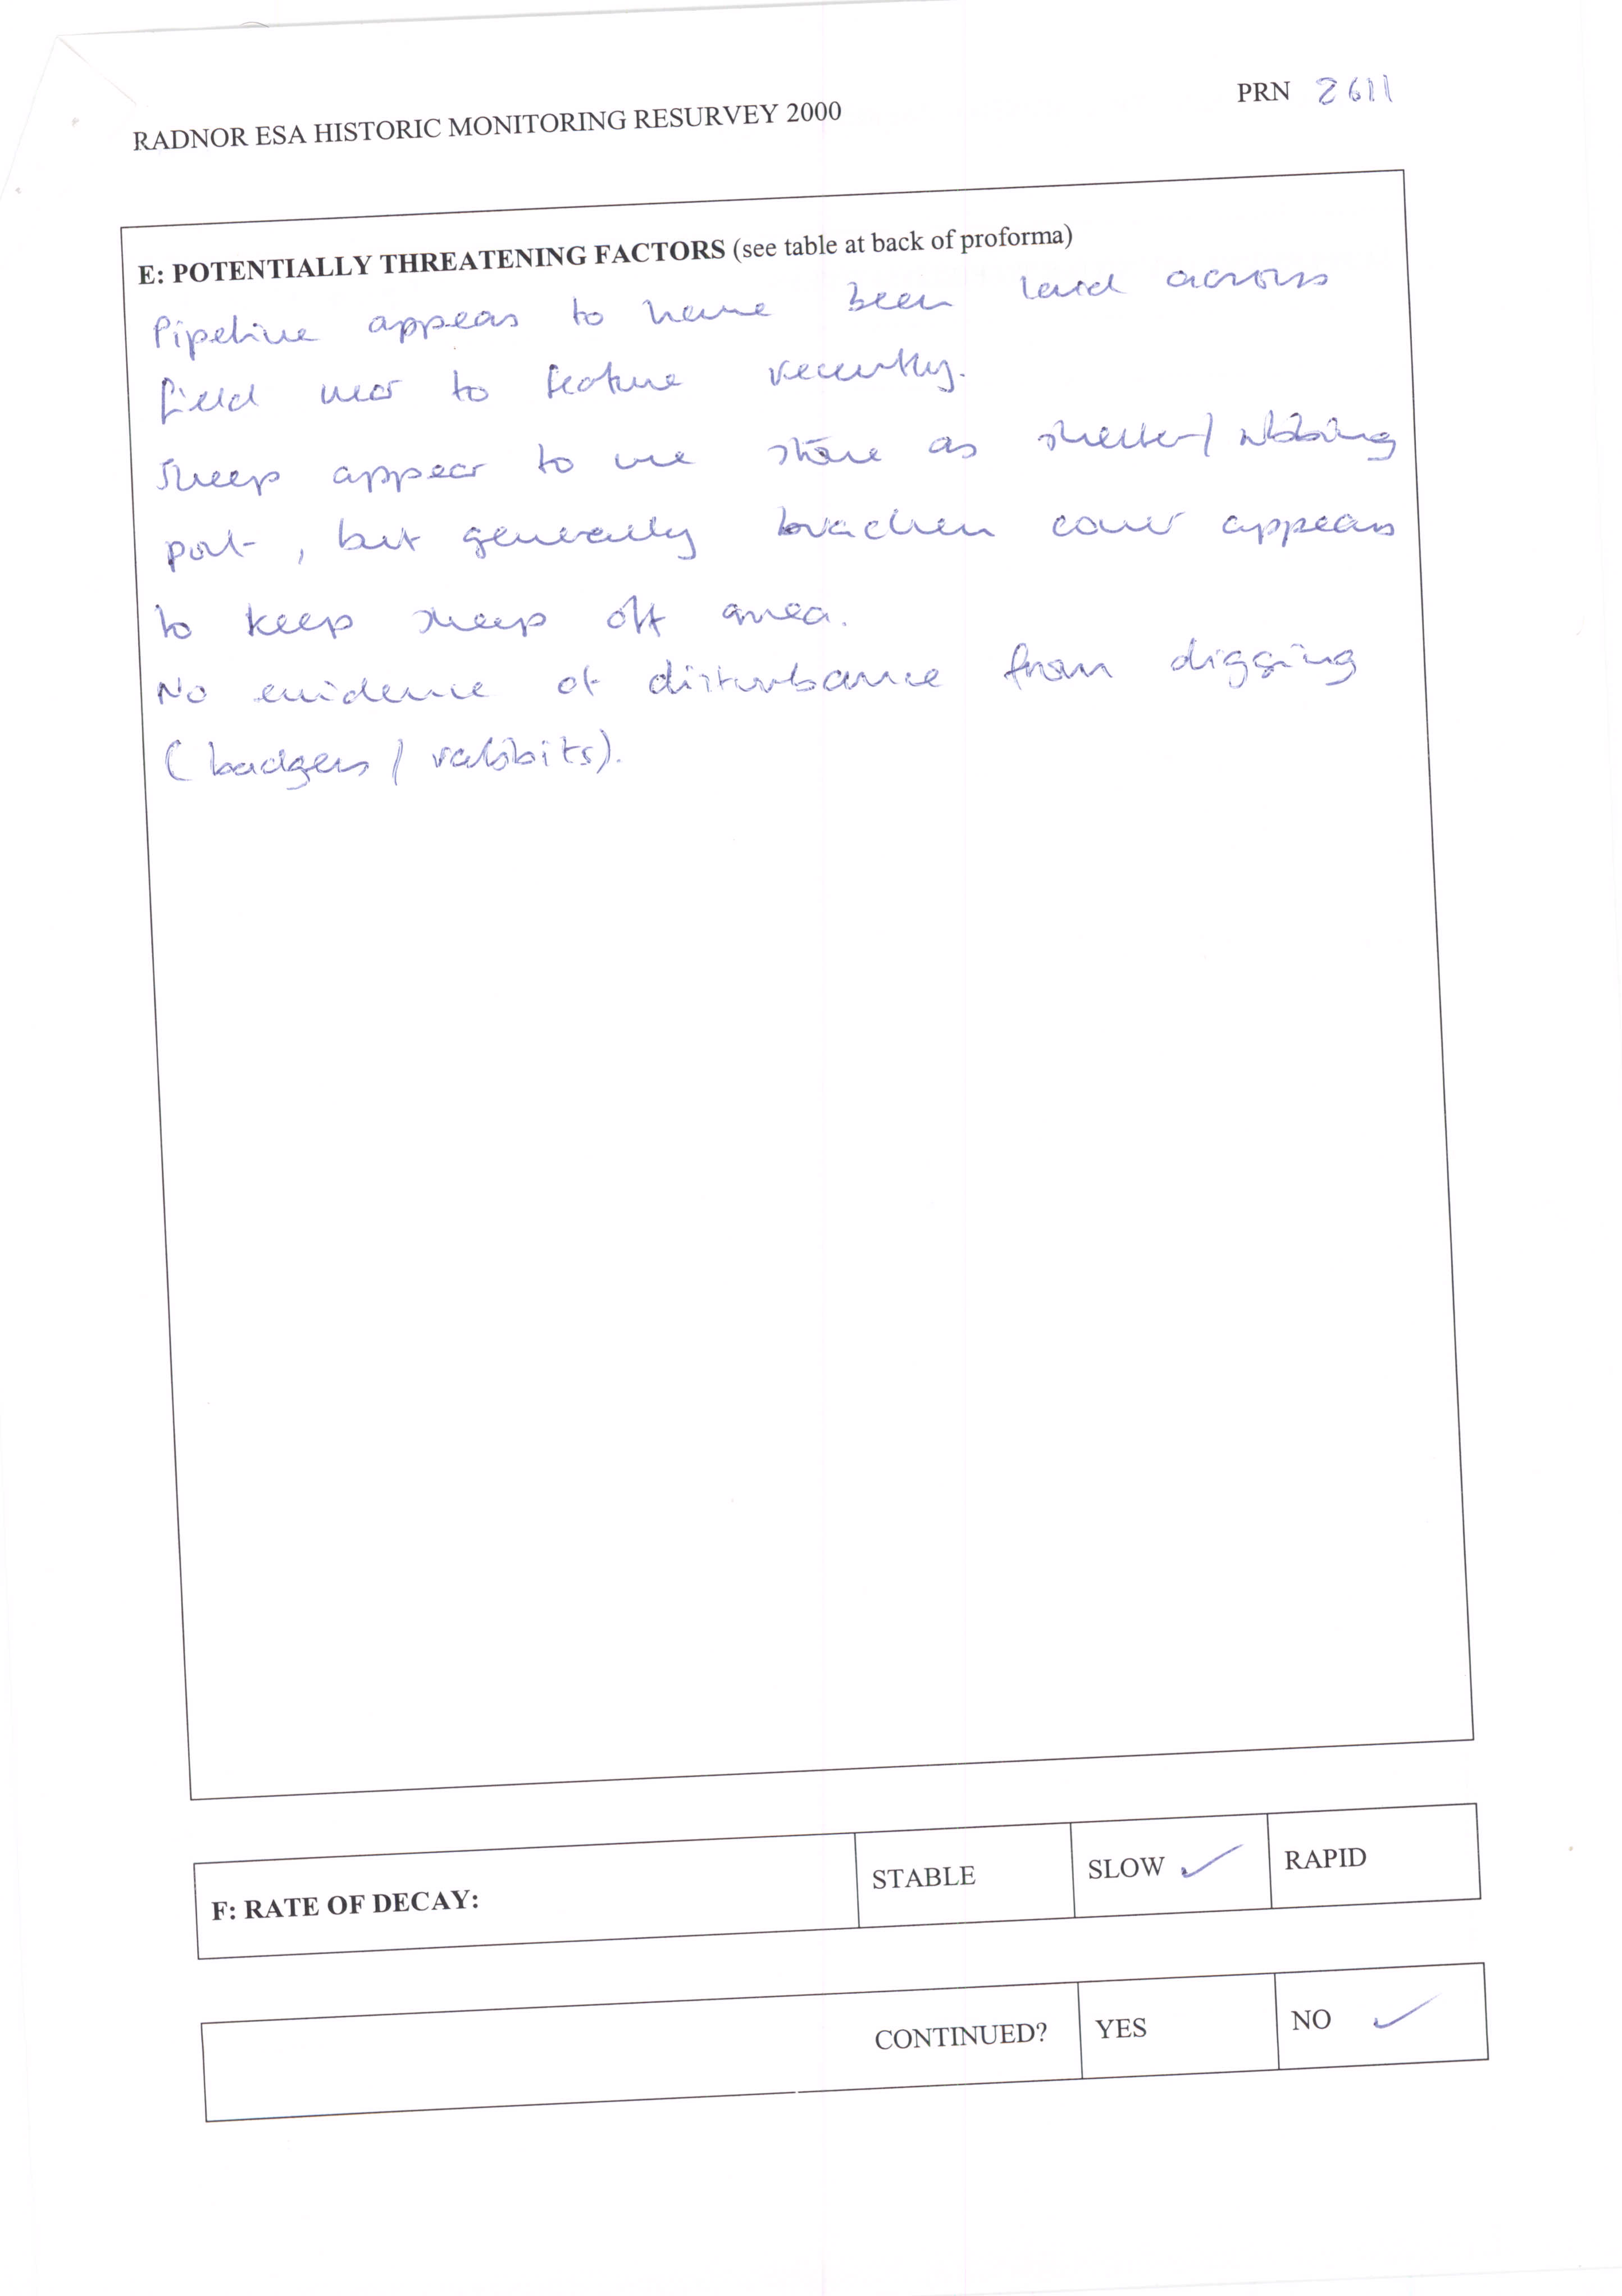 RADNOR ESA HISTORIC MONITORING RESURVEY 2000
PRN 2611
E: POTENTIALLY THREATENING FACTORS (see table at back of proforma)
Pipeline appears to have been laid across
field near to feature recently.
Sheep appear to use stone as shelter/rubbing
post, but generally bracken cover appears
to keep sheep off area.
No evidence of disturbance from digging
(badgers/rabbits).
F: RATE OF DECAY: STABLE SLOW ✓ RAPID
CONTINUED? YES NO ✓